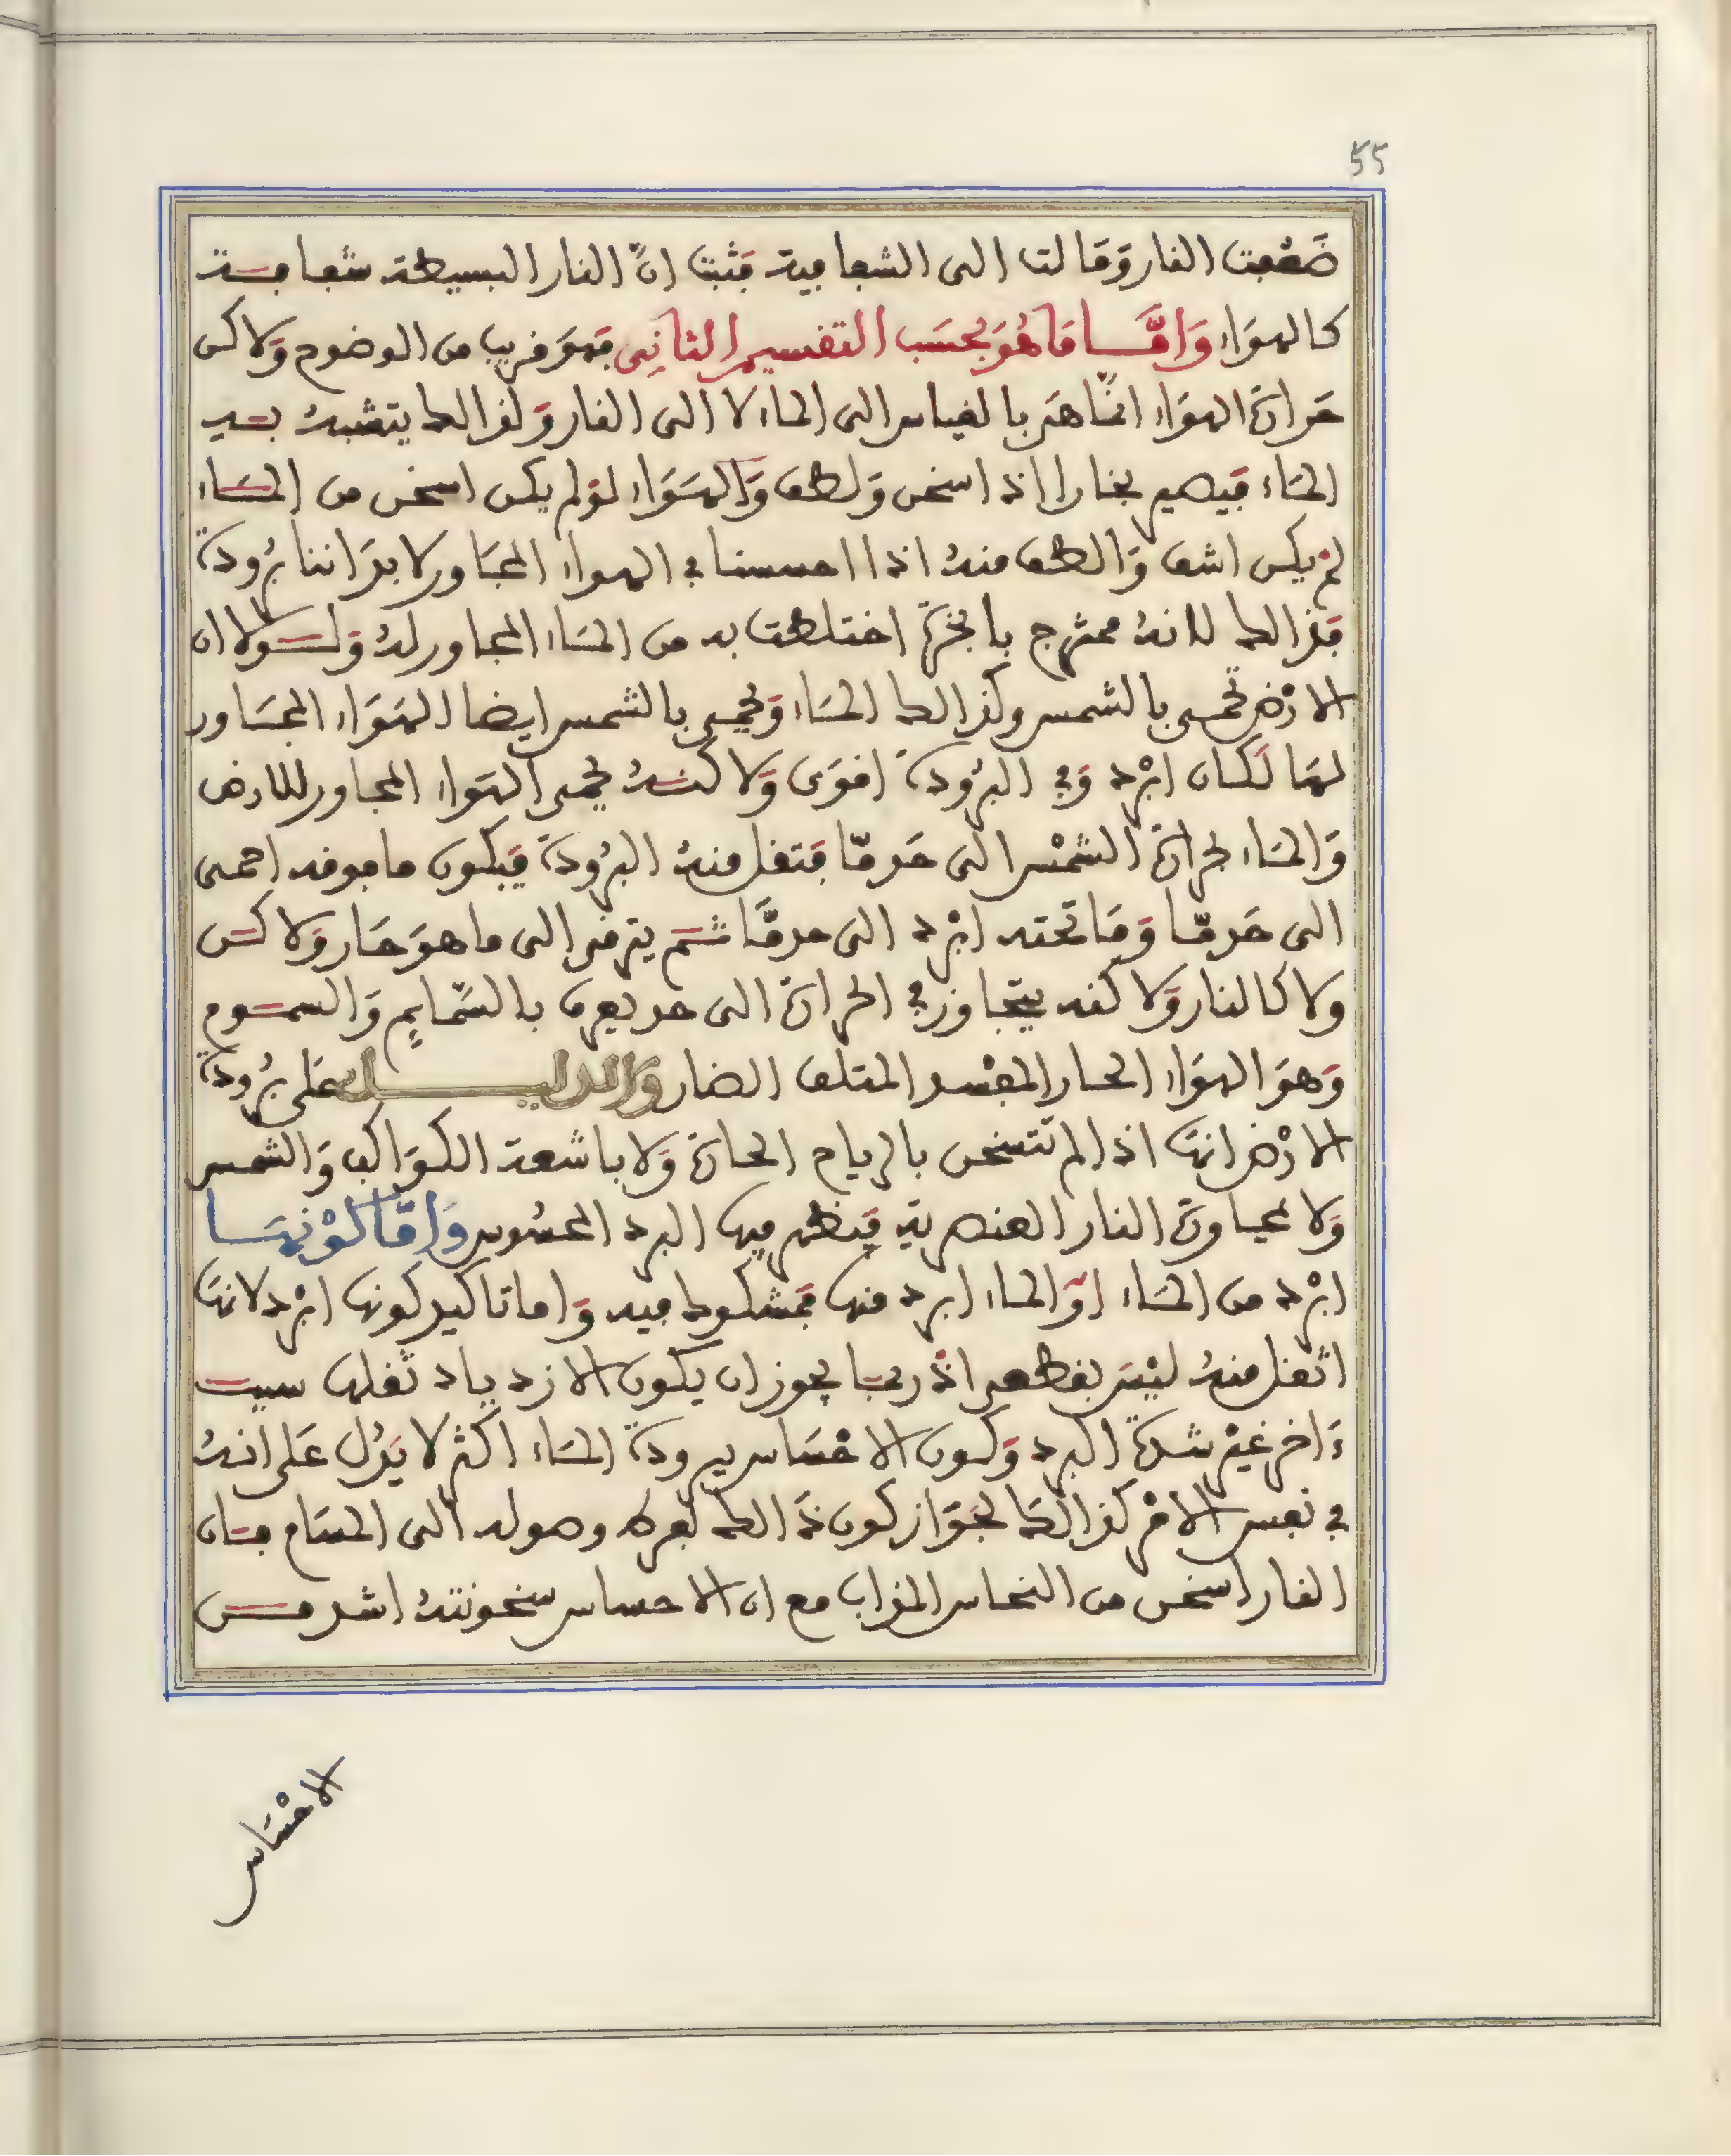 55
ضعفت النار ومالت الى الشفافية فثبت ان النار البسيطة شفافة
كالهواء واما ما هو بحسب التفسير الثاني فهو قريب من الوضوح ولاكن
حرارة الهواء انما هي بالقياس الى الماء لا الى النار ولذالك يتشبه به
الماء فيصير بخارا اذ اسخن ولطف والهواء لو لم يكن اسخن من الماء
لم يكن اشف والطف منه اذا احسسنا في الهواء المجاور لابداننا برودة
فذالك لانه ممتزج بابخرة اختلطت به من الماء المجاور له ولولا ان
الارض تحمى بالشمس وكذالك الماء ويحمى بالشمس ايضا الهواء المجاور
لهما لكان ابرد وفي البرودة اقوى ولاكنه يحمى الهواء المجاور للارض
والماء لحرارة الشمس الى حد ما فتقل منه البرودة فيكون ما فوقه احمى
الى حد ما وما تحته ابرد الى حد ما ثم يترقى الى ما هو حار ولاكن
ولا كالنار ولاكنه يتجاوز في الحرارة الى حد يعرف بالسمايم والسموم
وهو الهواء الحار المفسد المتلف الضار والدليل على برودة
الارض انها اذا لم تتسخن بالرياح الحارة ولا باشعة الكواكب والشمس
ولا بمجاورة النار العنصرية فيظهر فيها البرد المحسوس واما كونها
ابرد من الماء او الماء ابرد منها فمشكوك فيه واما تاكيد كونها ابرد لانها
اثقل منه ليس بقطعي اذ ربما يجوز ان يكون الازدياد ثقلها سبب
ءاخر غير شدة البرد وكون الاحساس ببرودة الماء اكثر لا يدل على انه
في نفس الامر كذالك لجواز كون ذالك لفرط وصوله الى المسام فان
النار اسخن من النحاس المذاب مع ان الاحساس بسخونته اشد من
الاحساس